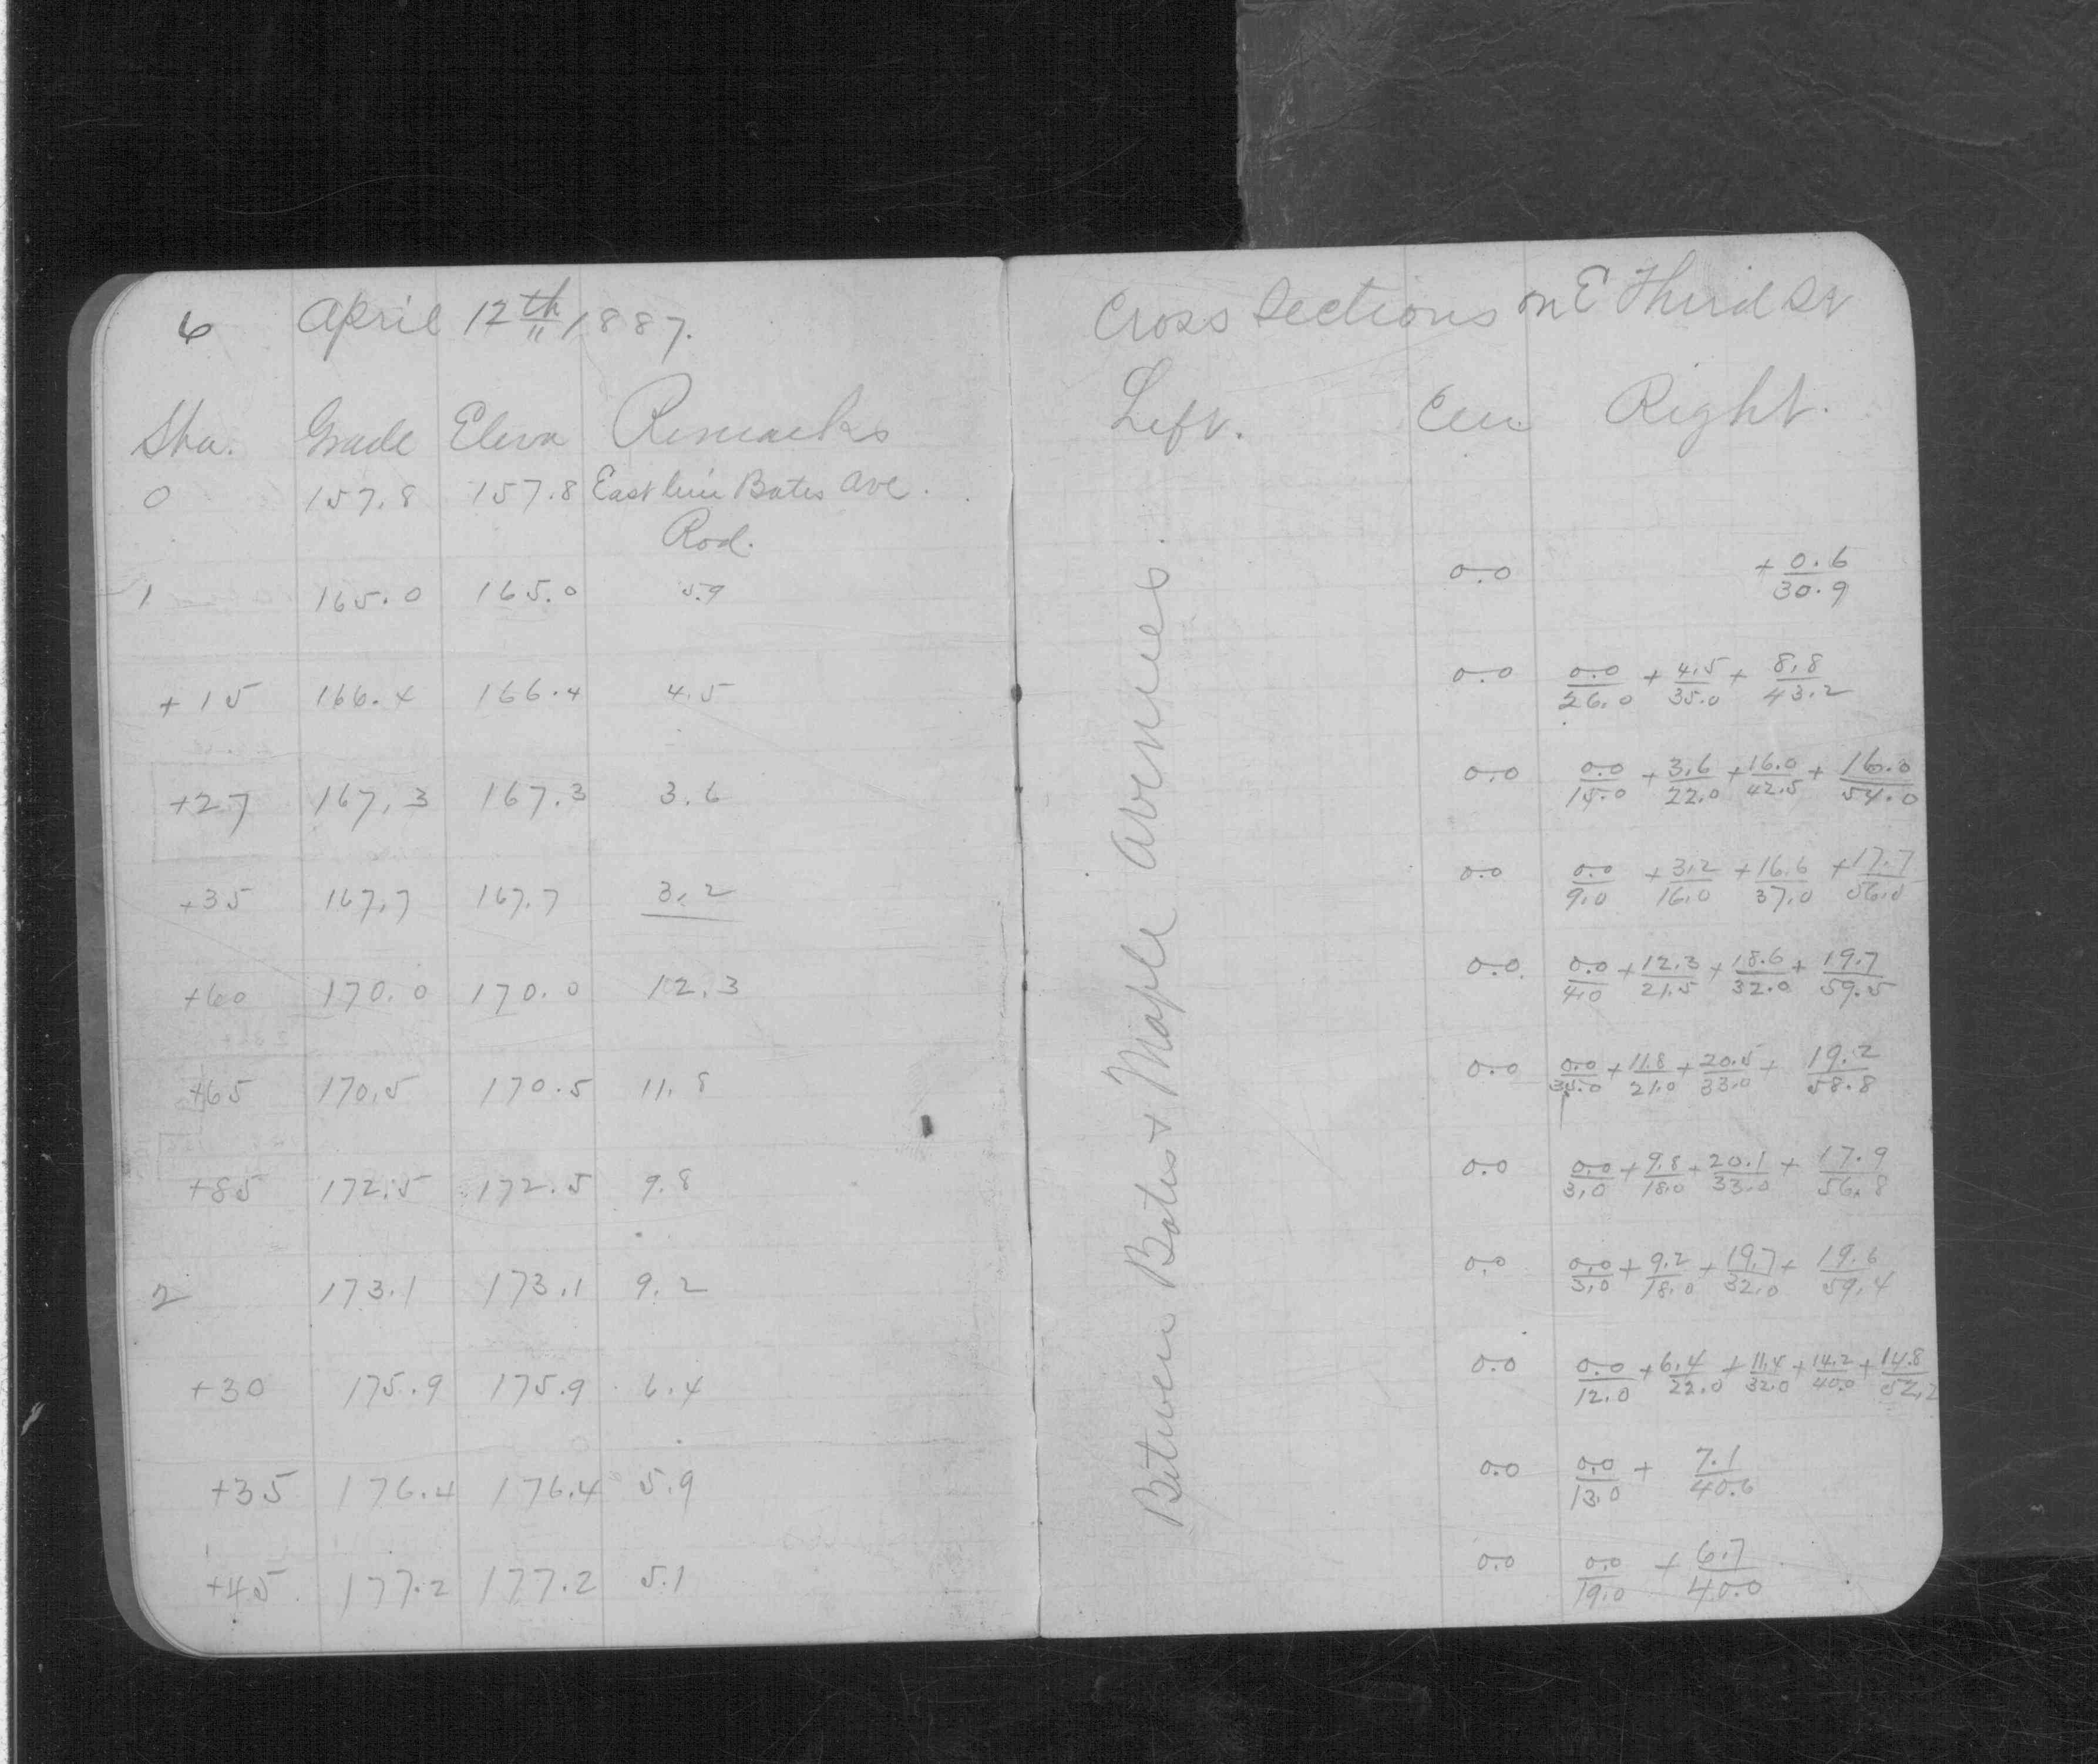 6 April 12th 1887.
Sta. Grade Eleva Remarks
0 157.8 157.8 East line Bates Ave.
Rod.
1 165.0 165.0 5.9
+15 166.4 166.4 4.5
+27 167.3 167.3 3.6
+35 167.7 167.7 3.2
+60 170.0 170.0 12.3
+65 170.5 170.5 11.8
+85 172.5 172.5 9.8
2 173.1 173.1 9.2
+30 175.9 175.9 6.4
+35 176.4 176.4 5.9
+45 177.2 177.2 5.1
Cross Sections on E Third St
Left. Cen. Right.
Between Bates & Maple Avenues.
0.0 + 0.6/30.9
0.0 0.0/26.0 + 4.5/35.0 + 8.8/43.2
0.0 0.0/15.0 + 3.6/22.0 + 16.0/42.5 + 16.0/54.0
0.0 0.0/9.0 + 3.2/16.0 + 16.6/37.0 + 17.7/56.5
0.0 0.0/4.0 + 12.3/21.5 + 18.6/32.0 + 19.7/59.5
0.0 0.0/35.0 + 11.8/21.0 + 20.5/33.0 + 19.2/58.8
0.0 0.0/3.0 + 9.8/18.0 + 20.1/33.0 + 17.9/56.8
0.0 0.0/3.0 + 9.2/18.0 + 19.7/32.0 + 19.6/59.4
0.0 0.0/12.0 + 6.4/22.0 + 11.4/32.0 + 14.2/40.0 + 14.8/52.2
0.0 0.0/13.0 + 7.1/40.6
0.0 0.0/19.0 + 6.7/40.0